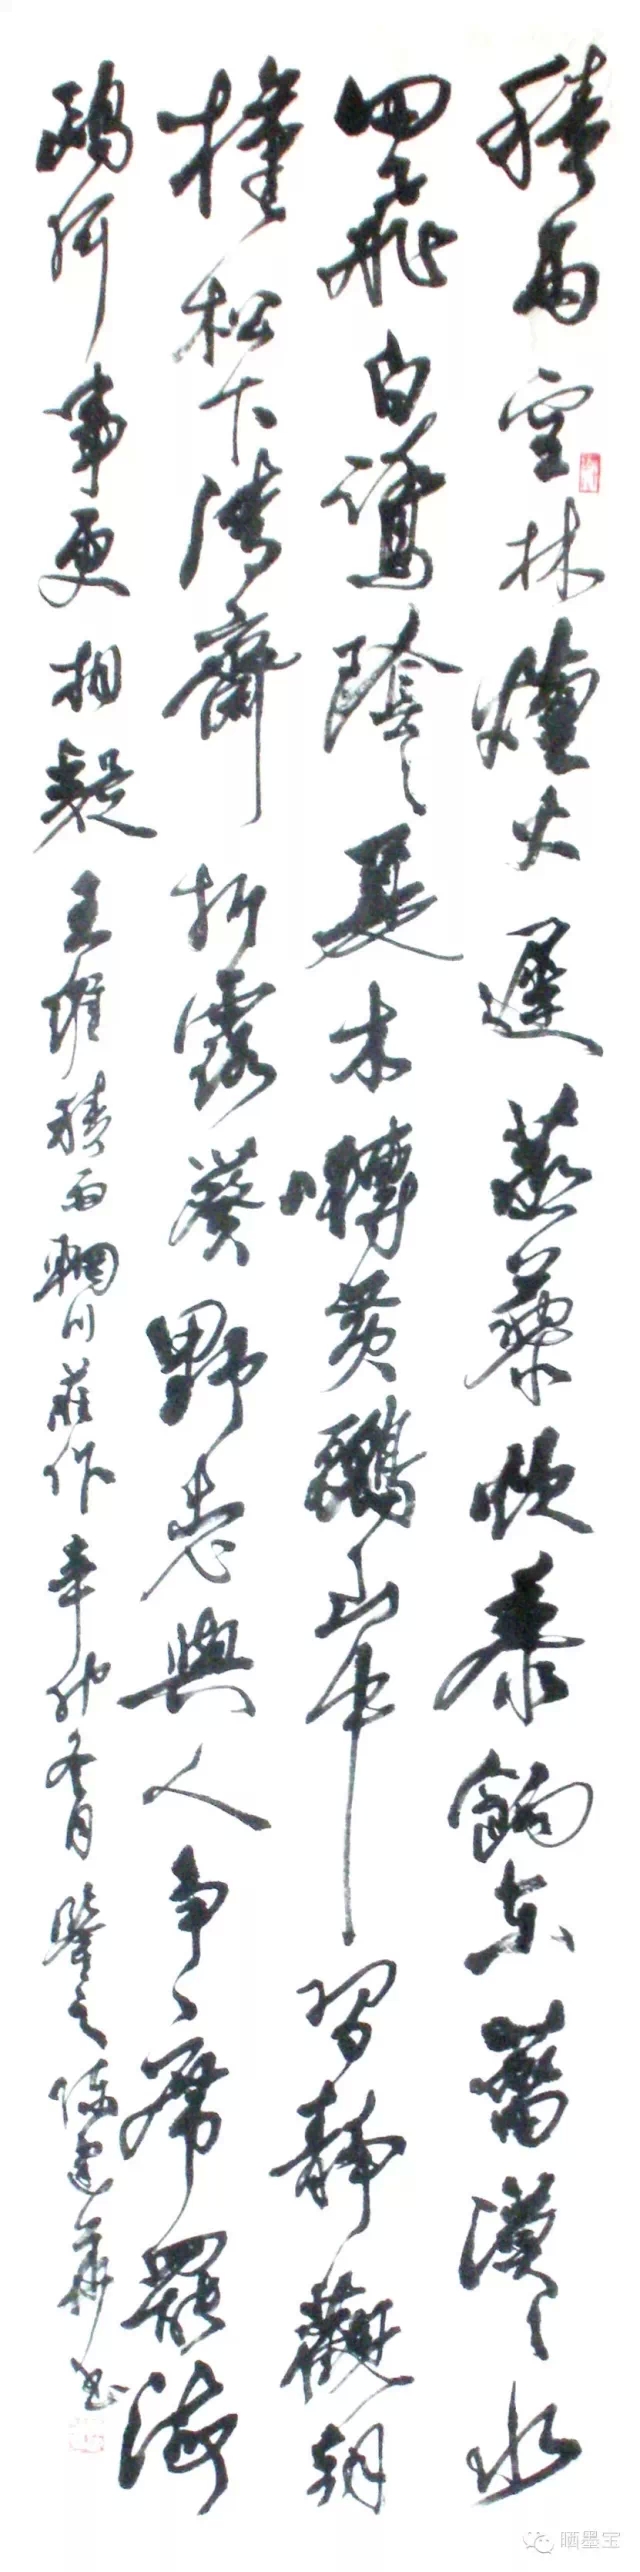 積雨空林煙火遲蒸藜炊黍餉東菑漠〻水
田飛白鷺陰〻夏木囀黃鸝山中習靜觀朝
槿松下清齋折露葵野老與人爭席罷海
鷗何事更相疑王維積雨輞川莊作辛卯冬月 陳建華書
晒墨宝